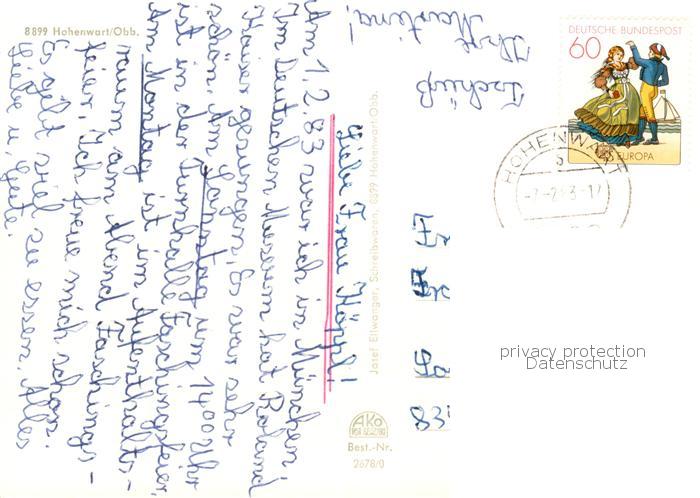 8899 Hohenwart/Obb.
Liebe Frau Höppl!
Am 1.2.83 war ich in München.
Im Deutschen Museum hat Roland
Kaiser gesungen, Es war sehr
schön. Am Samstag um 14⁰⁰ Uhr
ist in der Turnhalle Faschingsfeier.
Am Montag ist im Aufenthalts-
raum am Abend Faschings-
feier. Ich freue mich schon.
Es gibt viel zu essen. Alles
Liebe u. Gute.
Tschüß
Ihre
Martina!
Josef Ellwanger, Schreibwaren, 8899 Hohenwart Obb.
DEUTSCHE BUNDESPOST
60
EUROPA
HOHENWART
b
-7.-2.83-17
83
AKO
Best.-Nr.
2678/0
privacy protection
Datenschutz